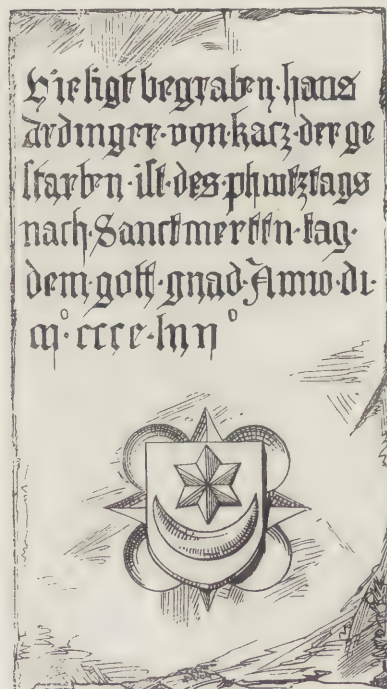 Hie ligt begraben · hans
Ardinger · von · katz · der ge
starben · ist · des · phintztags
nach · Sanct mertten · tag ·
dem · gott · gnad · Anno · di ·
mº · cccc ·